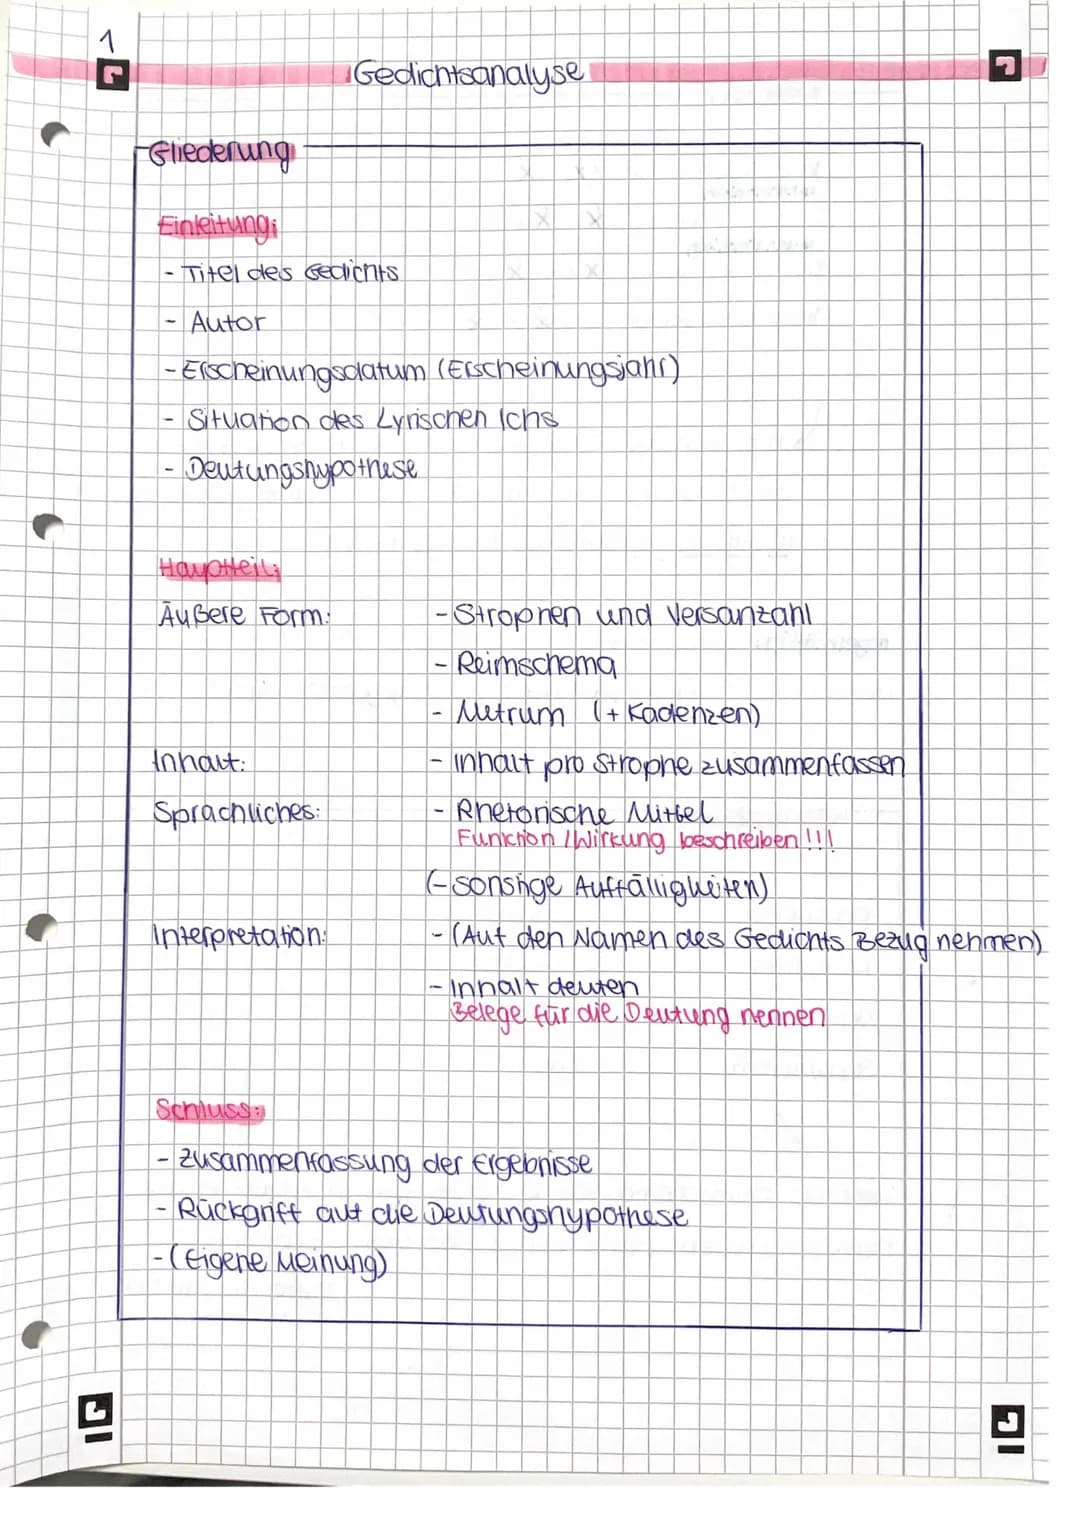 1
Gedichtsanalyse
Gliederung
Einleitung:
- Titel des Gedichts
- Autor
- Erscheinungsdatum (Erscheinungsjahr)
- Situation des Lyrischen Ichs
- Deutungshypothese
Hauptteil:
Äußere Form: - Strophen und Versanzahl
- Reimschema
- Metrum (+ Kadenzen)
Inhalt: - Inhalt pro Strophe zusammenfassen
Sprachliches: - Rhetorische Mittel
Funktion / Wirkung beschreiben!!!
(- sonstige Auffälligkeiten)
Interpretation: - (Auf den Namen des Gedichts Bezug nehmen)
- Inhalt deuten
Belege für die Deutung nennen
Schluss:
- Zusammenfassung der Ergebnisse
- Rückgriff auf die Deutungshypothese
- (Eigene Meinung)